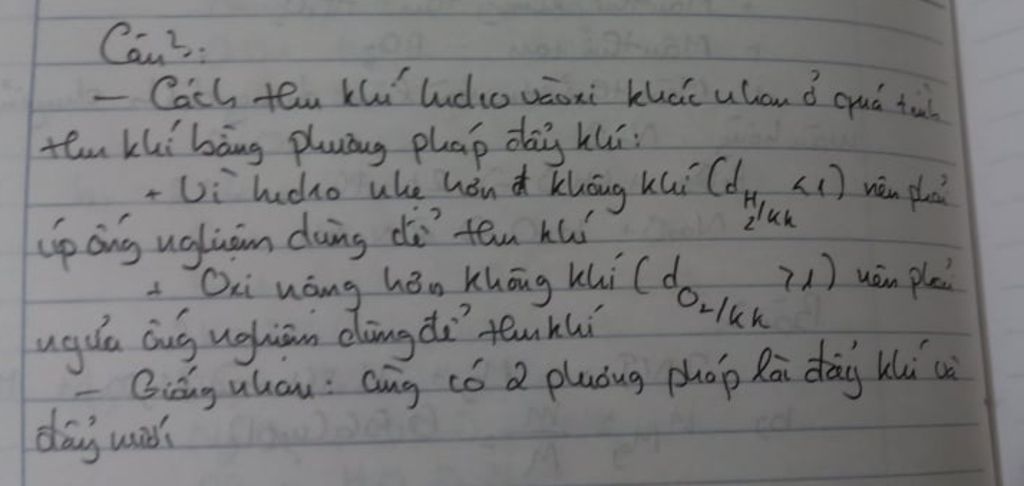 Câu 3:
- Cách thu khí hidro và oxi khác nhau ở quá trình
thu khí bằng phương pháp đẩy khí:
+ Vì hidro nhẹ hơn không khí (d H2/kk <1) nên phải
úp ống nghiệm dùng để thu khí
+ Oxi nặng hơn không khí (d O2/kk >1) nên phải
ngửa ống nghiệm dùng để thu khí
- Giống nhau: cũng có 2 phương pháp là đẩy khí và
đẩy nước